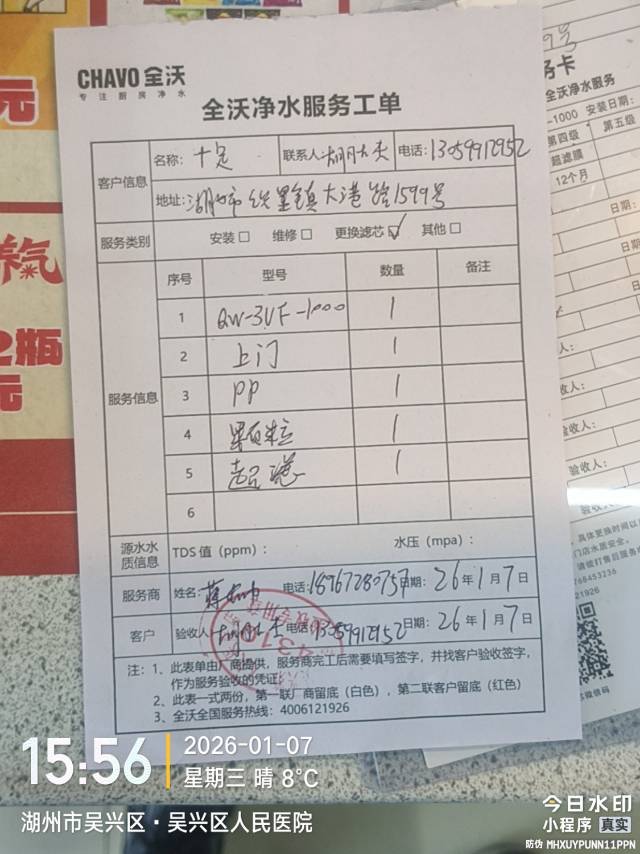 元
养气
2瓶
元
CHAVO 全沃
专注厨房净水
全沃净水服务工单
客户信息
名称：十足
联系人：胡月大夫
电话：13059912952
地址：湖州市织里镇大港路1599号
服务类别
安装□ 维修□ 更换滤芯☑ 其他□
服务信息
序号 型号 数量 备注
1 QW-3UF-1000 1
2 上门 1
3 PP 1
4 颗粒 1
5 超滤 1
6
源水水质信息
TDS 值（ppm）： 水压（mpa）：
服务商
姓名：
电话：18967280757
日期：26年1月7日
客户
验收人：
电话：13059912952
日期：26年1月7日
注：1、此表单由厂商提供，服务商完工后需要填写签字，并找客户验收签字，
作为服务验收的凭证
2、此表一式两份，第一联厂商留底（白色），第二联客户留底（红色）
3、全沃全国服务热线：4006121926
务卡
全沃净水服务
-1000 安装日期：
第四级 第五级
超滤膜
12个月
日期：
验收人：
15:56
2026-01-07
星期三 晴 8℃
湖州市吴兴区·吴兴区人民医院
今日水印
小程序 真实
防伪 MHXUYPUNN11PPN